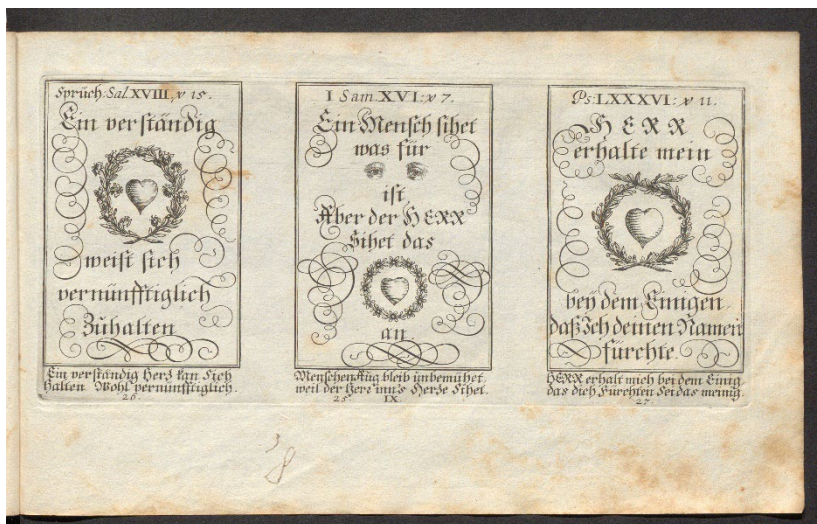 Sprüch: Sal. XVIII. v 15.
Ein verständig
weist sich
vernünfftiglich
Zuhalten
Ein verständig Herz kan Sich
halten Wohl vernünfftiglich.
26.
I Sam. XVI: v 7.
Ein Mensch sihet
was für
ist
Aber der HERR
Sihet das
an.
Menschen Aug bleib unbemühet
weil der Herr ins Herze Sihet.
25. IX.
Ps: LXXXVI: v 11.
HERR
erhalte mein
bey dem Einigen
daß Ich deinen Namen
fürchte.
HERR erhalt mich bei dem Einig,
das dich Fürchten Sei das meinig.
27.